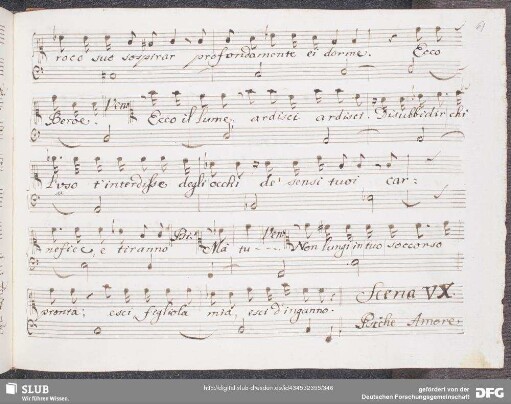 61
roco suo sospirar profondamente ei dorme. Ecco
Beroe. Ven: Ecco il lume, ardisci ardisci. Disubbidir chi
l'uso t'interdisse degli occhi de' sensi tuoi car:
nefice, e tiranno Psi: Ma tu --- Ven: Non lungi in tuo soccorso
pronta; esci figliola mia, esci d'inganno. Scena VX.
Psiche Amore.
SLUB
Wir führen Wissen.
gefördert von der
Deutschen Forschungsgemeinschaft
DFG